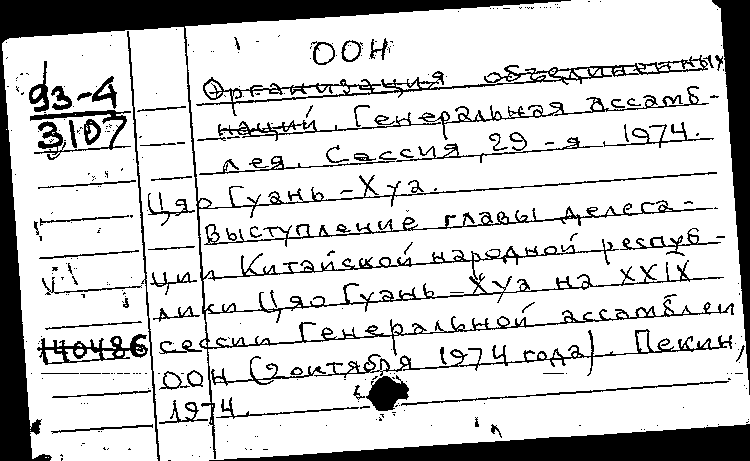 ООН
93-4
3107
Организация объединенных
наций. Генеральная ассамб-
лея. Сессия, 29-я. 1974.
Цяо Гуань-Хуа.
Выступление главы делега-
ции Китайской народной респуб-
лики Цяо Гуань-Хуа на XXIX
сессии Генеральной ассамблеи
140486
ООН (2 октября 1974 года). Пекин,
1974.